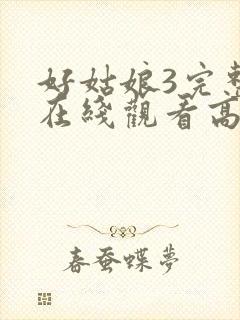 好姑娘3完整
在线觀看高
春蚕蝶夢